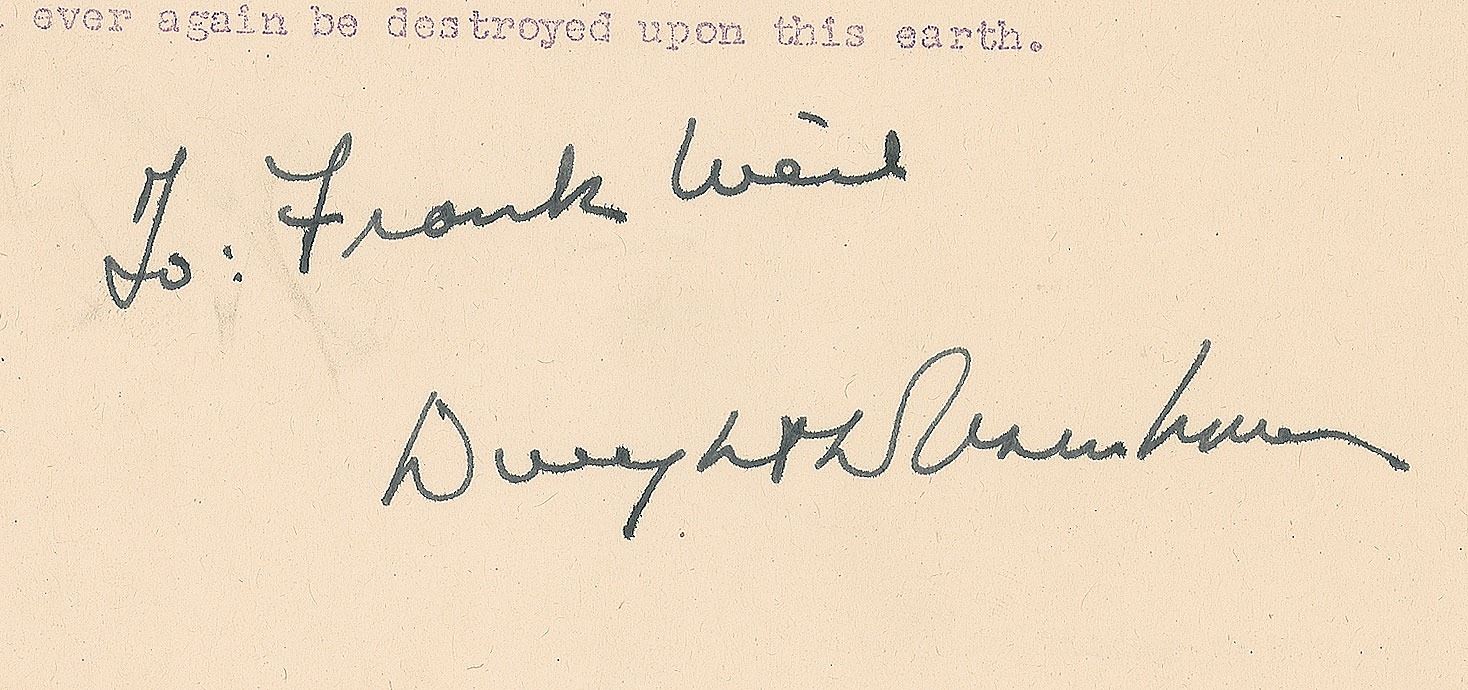 ever again be destroyed upon this earth.
To: Frank Weil
Dwight D Eisenhower